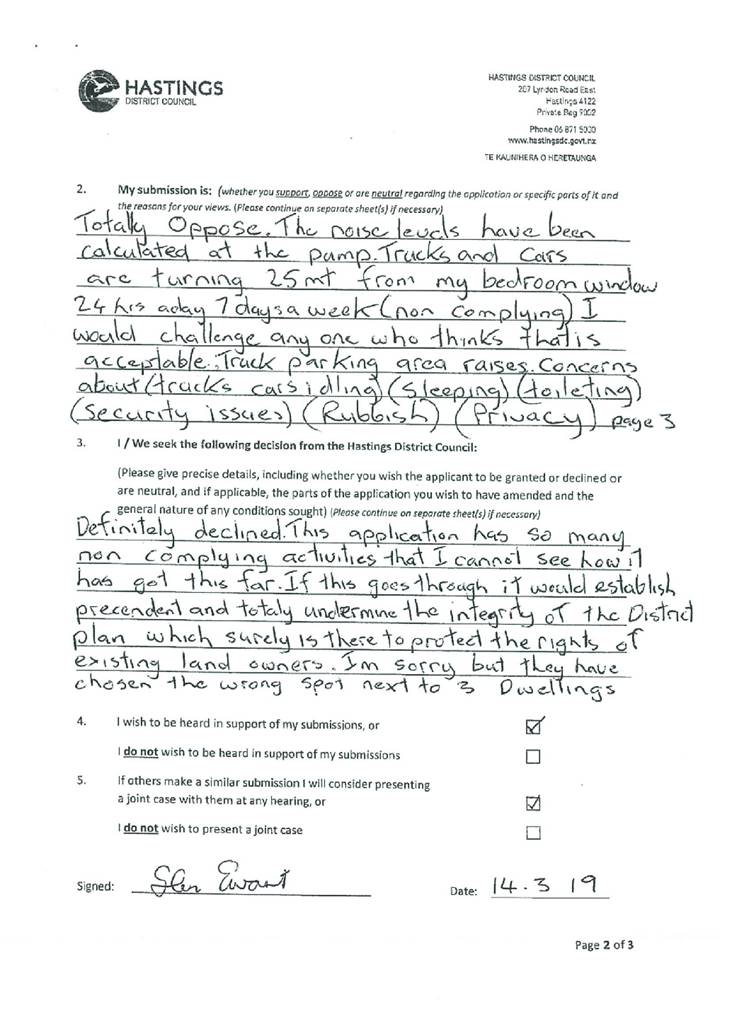 HASTINGS
DISTRICT COUNCIL
HASTINGS DISTRICT COUNCIL
207 Lyndon Road East
Hastings 4122
Private Bag 9002
Phone 06 871 5000
www.hastingsdc.govt.nz
TE KAUNIHERA O HERETAUNGA
2. My submission is: (whether you support, oppose or are neutral regarding the application or specific parts of it and
the reasons for your views. (Please continue on separate sheet(s) if necessary)
Totally Oppose. The noise levels have been
calculated at the pump. Trucks and Cars
are turning 25mt from my bedroom window
24 hrs aday 7 days a week (non complying) I
would challenge any one who thinks that is
acceptable. Truck parking area raises. Concerns
about (trucks cars idling) (sleeping) (toileting)
(security issues) (Rubbish) (Privacy) page 3
3. I / We seek the following decision from the Hastings District Council:
(Please give precise details, including whether you wish the applicant to be granted or declined or
are neutral, and if applicable, the parts of the application you wish to have amended and the
general nature of any conditions sought) (Please continue on separate sheet(s) if necessary)
Definitely declined. This application has so many
non complying activities that I cannot see how it
has got this far. If this goes through it would establish
precendent and totaly undermine the integrity of the District
plan which surely is there to protect the rights of
existing land owners. Im sorry but they have
chosen the wrong spot next to 3 Dwellings
4. I wish to be heard in support of my submissions, or
I do not wish to be heard in support of my submissions
5. If others make a similar submission I will consider presenting
a joint case with them at any hearing, or
I do not wish to present a joint case
Signed:
Date: 14.3 19
Page 2 of 3